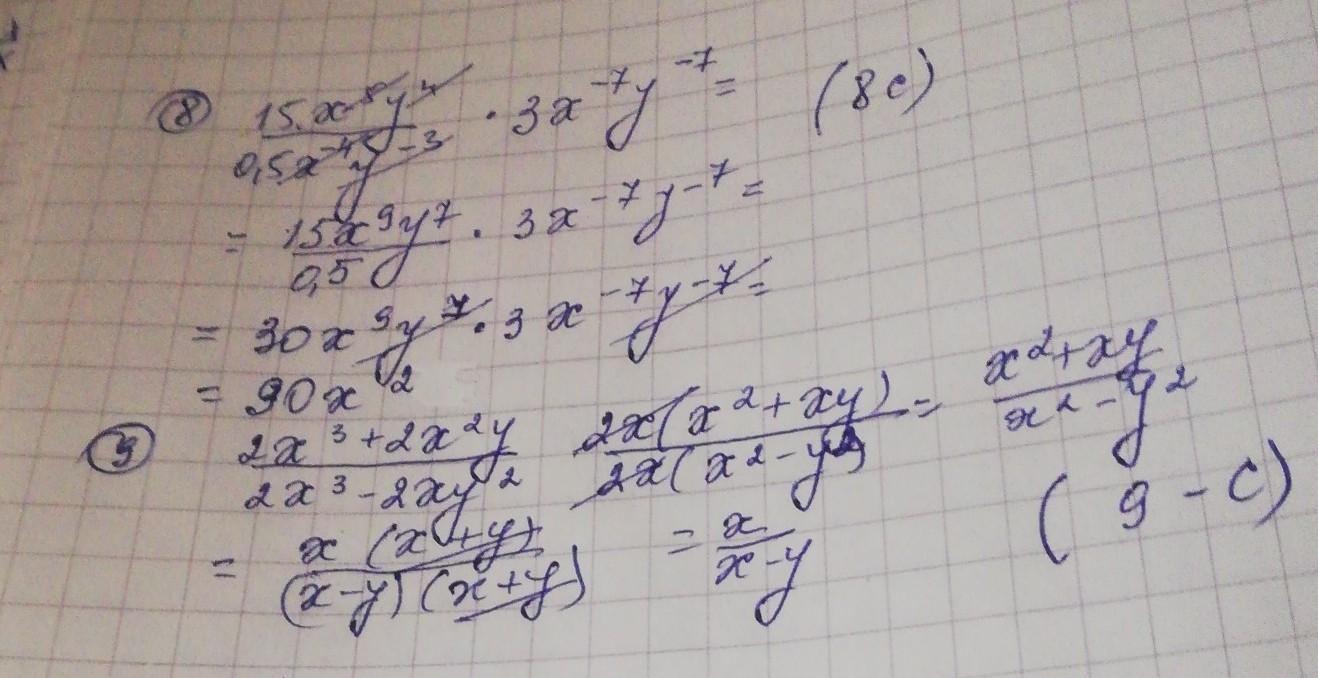 ⑧ 15x⁵y⁴/0,5x⁻⁴y⁻³ · 3x⁻⁷y⁻⁷ = (8c)
= 15x⁹y⁷/0,5 · 3x⁻⁷y⁻⁷ =
= 30x⁹y⁷ · 3x⁻⁷y⁻⁷ =
= 90x²
⑨ 2x³+2x²y/2x³-2xy² 2x(x²+xy)/2x(x²-y²) = x²+xy/x²-y²
= x(x+y)/(x-y)(x+y) = x/x-y (9-c)